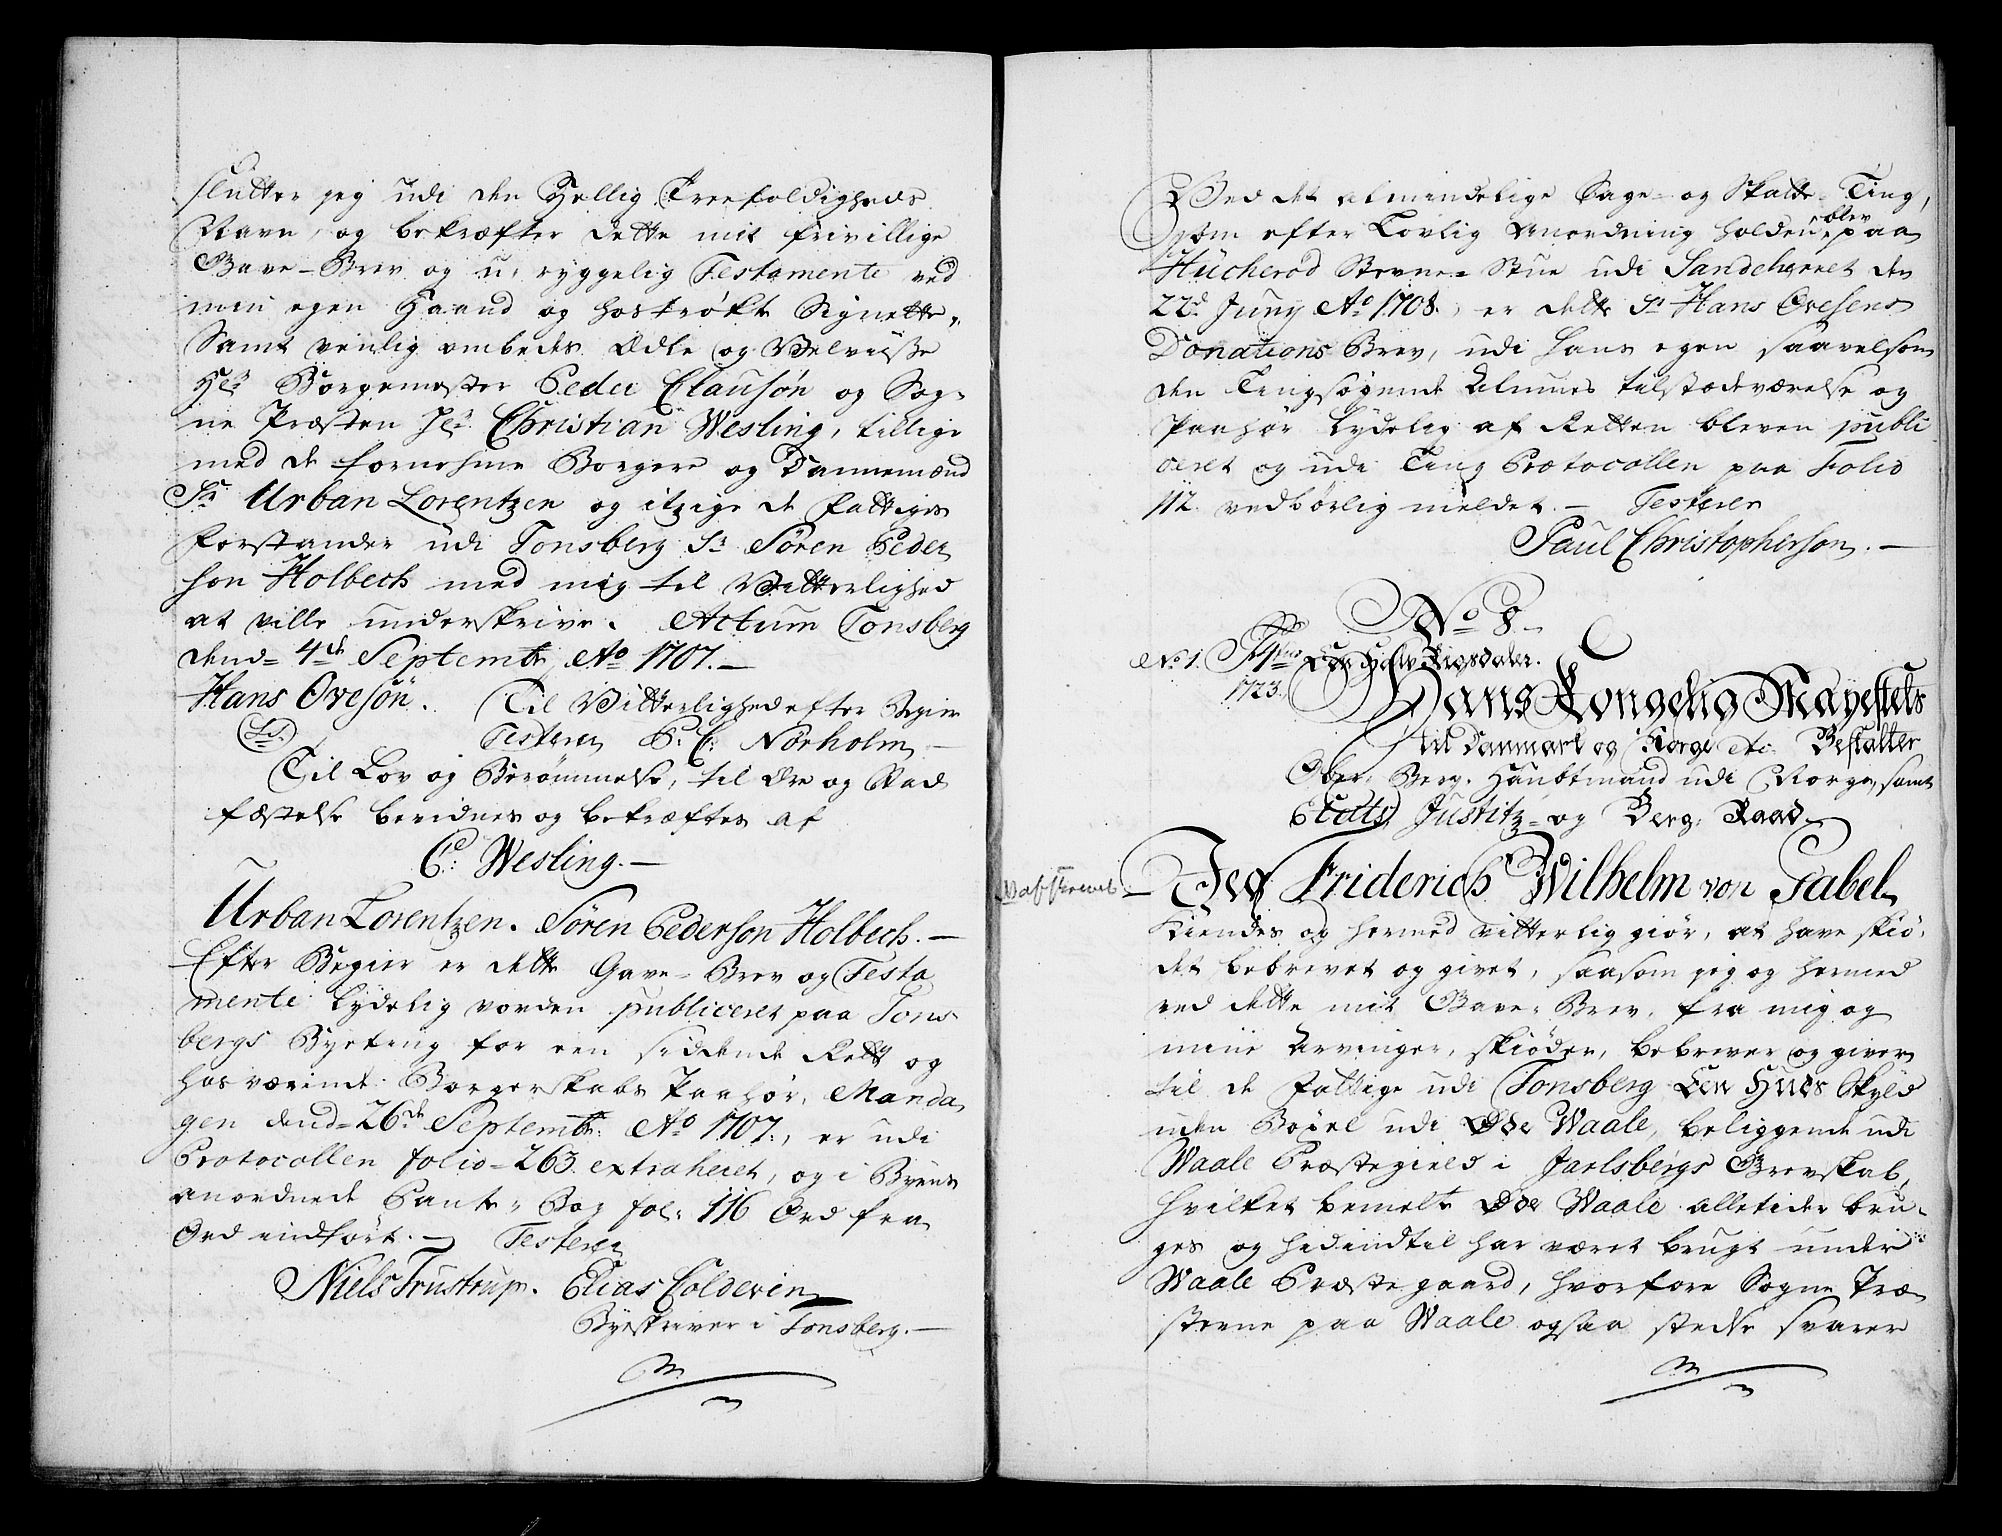 slutter jeg udi den Hellig Treefoldigheds
Navn, og bekræfter dette mit frivillige
Gave-Brev og u-ryggelig Testamente ved
min egen Haand og hostrøkt Signette,
Samt venlig ombedet Ædle og Velviise
Hr: Borgemester Peder Clausøn og Sog-
ne Præsten Hr: Christian Wesling, tillige
med de fornehme Borgere og Dannemænd
Sr Urban Lorentzen og itzige de Fattiges
Forstander udi Tonsberg Sr Sören Peder
søn Holbech med mig til Vitterlighed
at ville underskrive. Actum Tonsberg
dend= 4de Septembr. Ao 1707.—
Hans Ovesøn. Til Vitterlighed efter Begier
(LS.) Testerer P: C: Nørholm —
Til Lov og Berømmelse, til Ære og Stad
fæstelse beridnes og bekræftes af
C: Wesling.—
Urban Lorentzen. Sören Pederson Holbech.—
Efter Begier er dette Gave-Brev og Testa
mente lydelig vorden publiceret paa Tons
bergs Byeting for een siddende Rett og
hosværende Borgerskabs Paahør, Manda
gen dend= 26de Septembr: Ao 1707:, er udi
Protocollen folio= 263 extraheret, og i Byens
anordnede Pante-Bog fol: 116 Ord fra
Ord indført.— Testerer
Niels Trustrup. Elias Colderin
Byeskriver i Tonsberg.—
Ved det almindelige Sage- og Skatte-Ting,
som efter Lovlig Anordning holden blev paa
Hücherød Stevne-Stue udi Sandeherret den
22d Juny Ao 1708., er dette Sr Hans Ovesens
Donations Brev, udi hans egen saavelsom
den Tingsøgende Almues tilstædeværelse og
Paahør Lydelig af Retten bleven publi
ceret og udi Ting Protocollen paa Folio
112. vedbørlig meldet.— Testerer
Paul Christopherson.—
No 8.
No 1. 1723. Een Halv Rigsdaler.
Hans Kongelig Mayestets
til Danmark og Norge etc: Bestalter
Ober-Berg-Haubtmand udi Norge, samt
Etats, Justitz- og Berg-Raad
Jeg Friderich Wilhelm von Gabel
Kiendes og hermed vitterlig giør, at have skiø-
det bebrevet og givet, saasom jeg og hermed
ved dette mit Gave-Brev, fra mig og
mine Arvinger, skiøder, bebrever og giver
til de Fattige udi Tonsberg Een Huds Skyld
uden Bøxel udi Øde Waale, beliggende udi
Waale Præstegield i Jarlsbergs Grevskab,
hvilket bemelte Øde Waale alletider bru-
ges og hidindtil har været brugt under
Waale Præstegaard, hvorfore Sogne Præ-
sterne paa Waale ogsaa stedse svarer